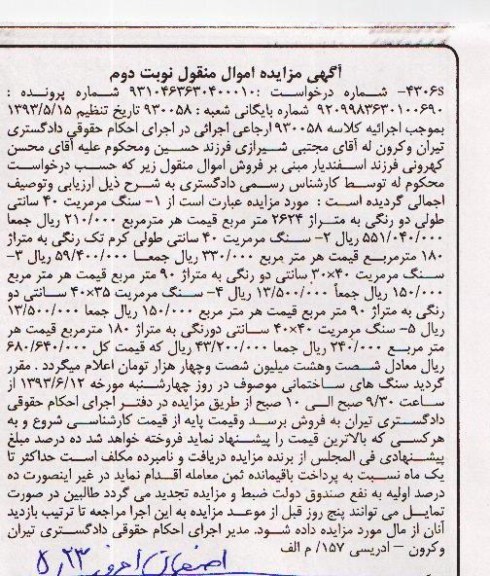 آگهی مزایده اموال منقول نوبت دوم
۴۳۰۶s- شماره درخواست :۹۳۱۰۴۶۳۶۳۰۴۰۰۰۱۰ شماره پرونده :
۹۲۰۹۹۸۳۶۳۰۱۰۰۶۹۰ شماره بایگانی شعبه : ۹۳۰۰۵۸ تاریخ تنظیم ۱۳۹۳/۵/۱۵
بموجب اجرائیه کلاسه ۹۳۰۰۵۸ ارجاعی اجرائی در اجرای احکام حقوقی دادگستری
تیران وکرون له آقای مجتبی شیرازی فرزند حسین ومحکوم علیه آقای محسن
کهرونی فرزند اسفندیار مبنی بر فروش اموال منقول زیر که حسب درخواست
محکوم له توسط کارشناس رسمی دادگستری به شرح ذیل ارزیابی وتوصیف
اجمالی گردیده است : مورد مزایده عبارت است از ۱- سنگ مرمریت ۴۰ سانتی
طولی دو رنگی به متراژ ۲۶۲۴ متر مربع قیمت هر مترمربع ۲۱۰/۰۰۰ ریال جمعا
۵۵۱/۰۴۰/۰۰۰ ریال ۲- سنگ مرمریت ۴۰ سانتی طولی کرم تک رنگی به متراژ
۱۸۰ مترمربع قیمت هر متر مربع ۳۳۰/۰۰۰ ریال جمعا ۵۹/۴۰۰/۰۰۰ ریال ۳-
سنگ مرمریت ۴۰×۳۰ سانتی دو رنگی به متراژ ۹۰ متر مربع قیمت هر متر مربع
۱۵۰/۰۰۰ ریال جمعاً ۱۳/۵۰۰/۰۰۰ ریال ۴- سنگ مرمریت ۳۵×۴۰ سانتی دو
رنگی به متراژ ۹۰ متر مربع قیمت هر متر مربع ۱۵۰/۰۰۰ ریال جمعا ۱۳/۵۰۰/۰۰۰
ریال ۵- سنگ مرمریت ۴۰×۴۰ سانتی دورنگی به متراژ ۱۸۰ مترمربع قیمت هر
متر مربع ۲۴۰/۰۰۰ ریال جمعا ۴۳/۲۰۰/۰۰۰ ریال که قیمت کل ۶۸۰/۶۴۰/۰۰۰
ریال معادل شصت وهشت میلیون شصت وچهار هزار تومان اعلام میگردد . مقرر
گردید سنگ های ساختمانی موصوف در روز چهارشنبه مورخه ۱۳۹۳/۶/۱۲ از
ساعت ۹/۳۰ صبح الی ۱۰ صبح از طریق مزایده در دفتر اجرای احکام حقوقی
دادگستری تیران به فروش برسد وقیمت پایه از قیمت کارشناسی شروع و به
هرکسی که بالاترین قیمت را پیشنهاد نماید فروخته خواهد شد ده درصد مبلغ
پیشنهادی فی المجلس از برنده مزایده دریافت و نامبرده مکلف است حداکثر تا
یک ماه نسبت به پرداخت باقیمانده ثمن معامله اقدام نماید در غیر اینصورت ده
درصد اولیه به نفع صندوق دولت ضبط و مزایده تجدید می گردد طالبین در صورت
تمایل می توانند پنج روز قبل از موعد مزایده به این اجرا مراجعه تا ترتیب بازدید
آنان از مال مورد مزایده داده شود. مدیر اجرای احکام حقوقی دادگستری تیران
وکرون – ادریسی ۱۵۷/ م الف
اصفهان امروز ۵/۲۳